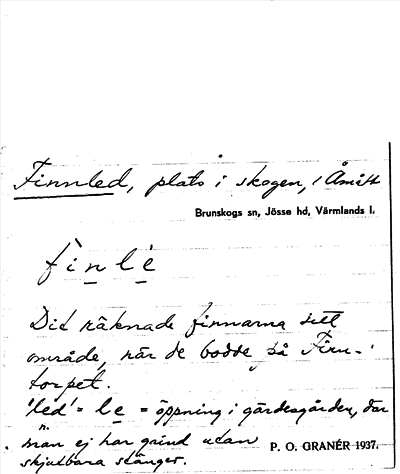 Finnled, plats i skogen, i Åmått
Brunskogs sn, Jösse hd, Värmlands l.
fìnlé
Did räknade finnarna sitt
område, när de bodde på Finn-
torpet.
'led' = le = öppning i gärdesgården, där
man ej har grind utan
P. O. GRANÉR 1937.
skjutbara stänger.